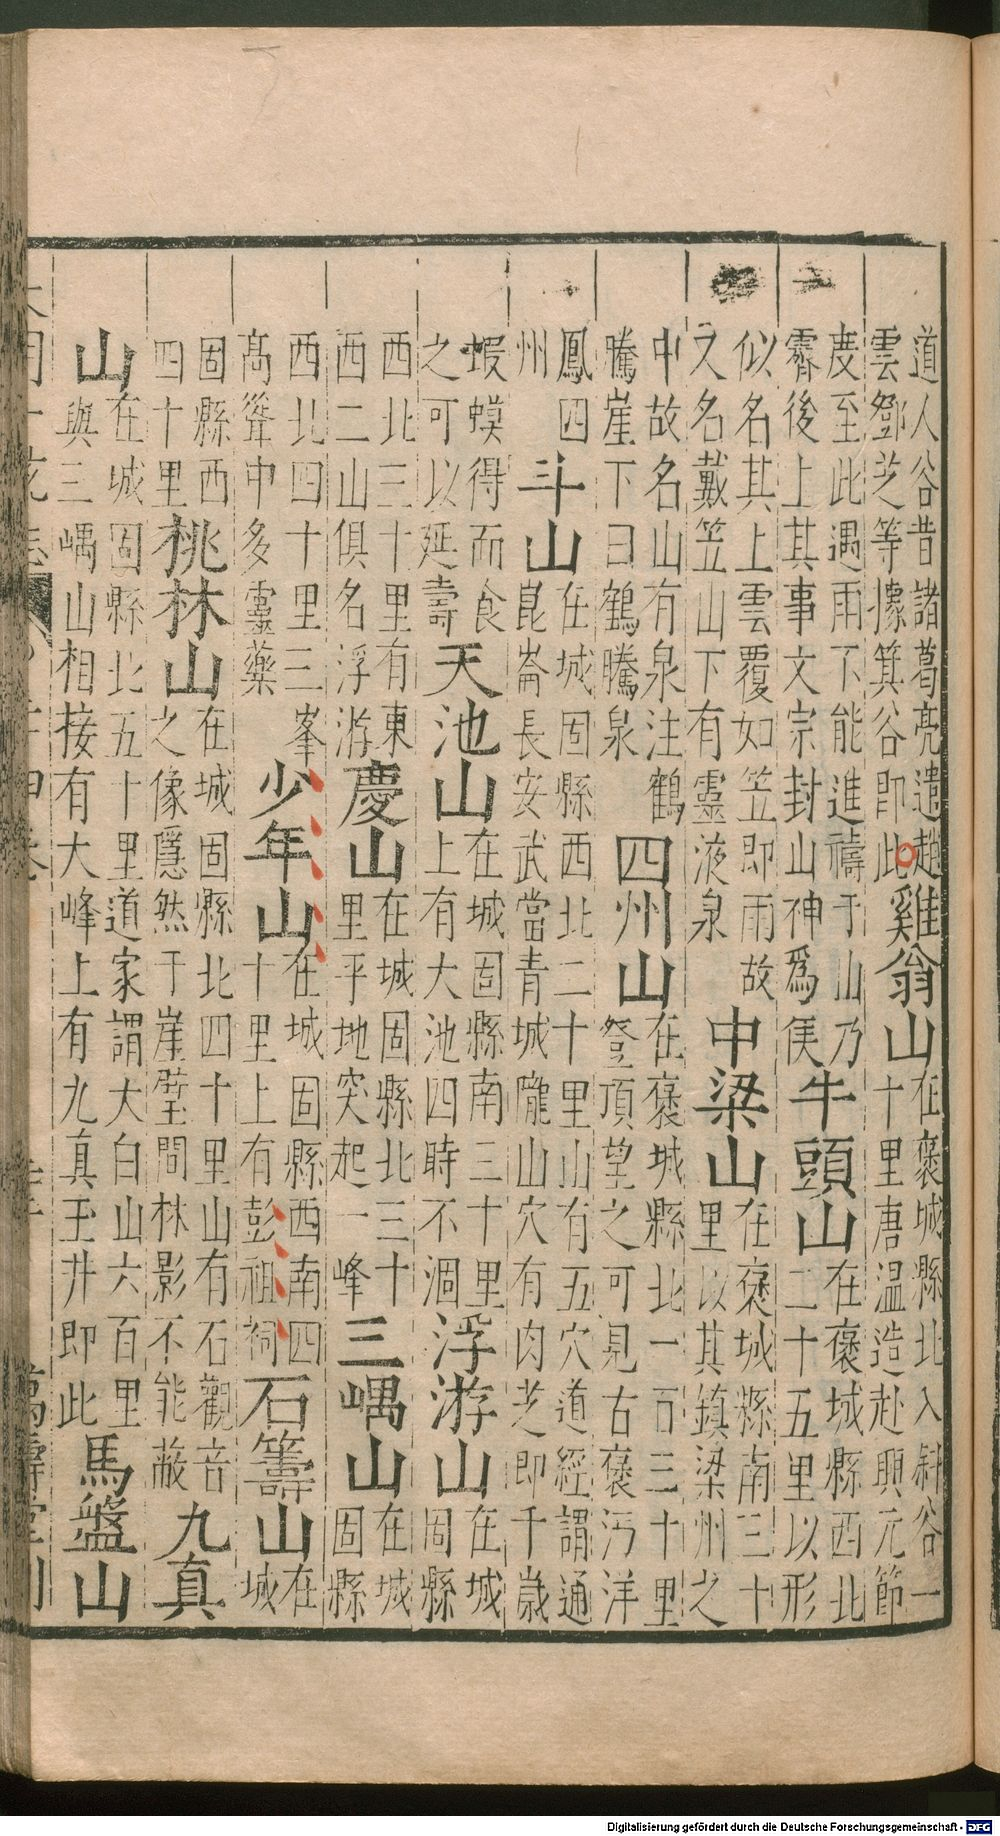 道人谷昔諸葛亮遣趙
雲鄧芝等據箕谷即此
雞翁山
在褒城縣北入斜谷一
十里唐温造赴興元節
度至此遇雨不能進禱于山乃
霽後上其事文宗封山神爲侯
牛頭山
在褒城縣西北
二十五里以形
似名其上雲覆如笠即雨故
又名戴笠山下有靈液泉
中梁山
在褒城縣南三十
里以其鎮梁州之
中故名山有泉注鶴
騰崖下曰鶴騰泉
四州山
在褒城縣北一百三十里
登頂望之可見古褒沔洋
鳳四
州
斗山
在城固縣西北二十里山有五穴道經謂通
崑崙長安武當青城隴山穴有肉芝即千歲
蝦蟆得而食
之可以延壽
天池山
在城固縣南三十里
上有大池四時不涸
浮游山
在城
固縣
西北三十里有東
西二山俱名浮游
慶山
在城固縣北三十
里平地突起一峰
三嵎山
在城
固縣
西北四十里三峯
高聳中多靈藥
少年山
在城固縣西南四
十里上有彭祖祠
石籌山
在
城
固縣西
四十里
桃林山
在城固縣北四十里山有石觀音
之像隱然于崖壁間林影不能蔽
九真
山
在城固縣北五十里道家謂大白山六百里
與三嵎山相接有大峰上有九真玉井即此
馬盤山
萬壽堂刊
Digitalisierung gefördert durch die Deutsche Forschungsgemeinschaft - DFG